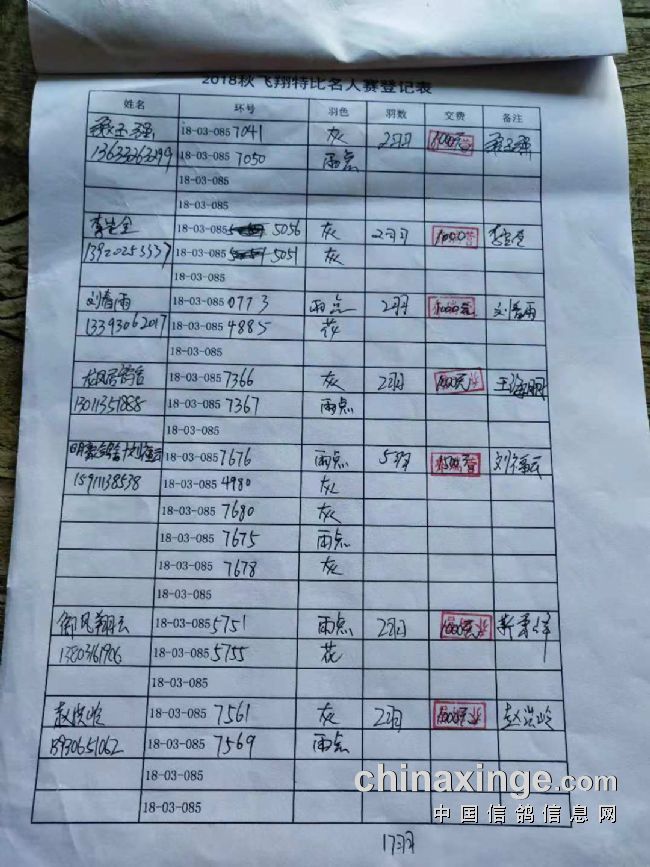 2018秋飞翔特比名人赛登记表
姓名 环号 羽色 羽数 交费 备注
18-03-085 7041 灰 2羽
18-03-085 7050 雨点
18-03-085
18-03-085
18-03-085 5056 灰 2羽 1000
13920253337 18-03-085 5051 灰
18-03-085
刘春雨 18-03-085 0773 雨点 2羽 1000元 刘春雨
13393062017 18-03-085 4885 花
18-03-085
18-03-085 7366 灰 2羽 王海明
13011351888 18-03-085 7367 雨点
18-03-085
18-03-085 7676 雨点 5羽 刘福云
15911138538 18-03-085 4980 灰
18-03-085 7680 灰
18-03-085 7675 雨点
18-03-085 7678 灰
18-03-085
御风翔云 18-03-085 5751 雨点 2羽 1000元
13803161906 18-03-085 5755 花
18-03-085
赵洪岭 18-03-085 7561 灰 2羽 1000元 赵洪岭
13930651062 18-03-085 7569 雨点
18-03-085
18-03-085
17羽
chinaxinge.com
中国信鸽信息网